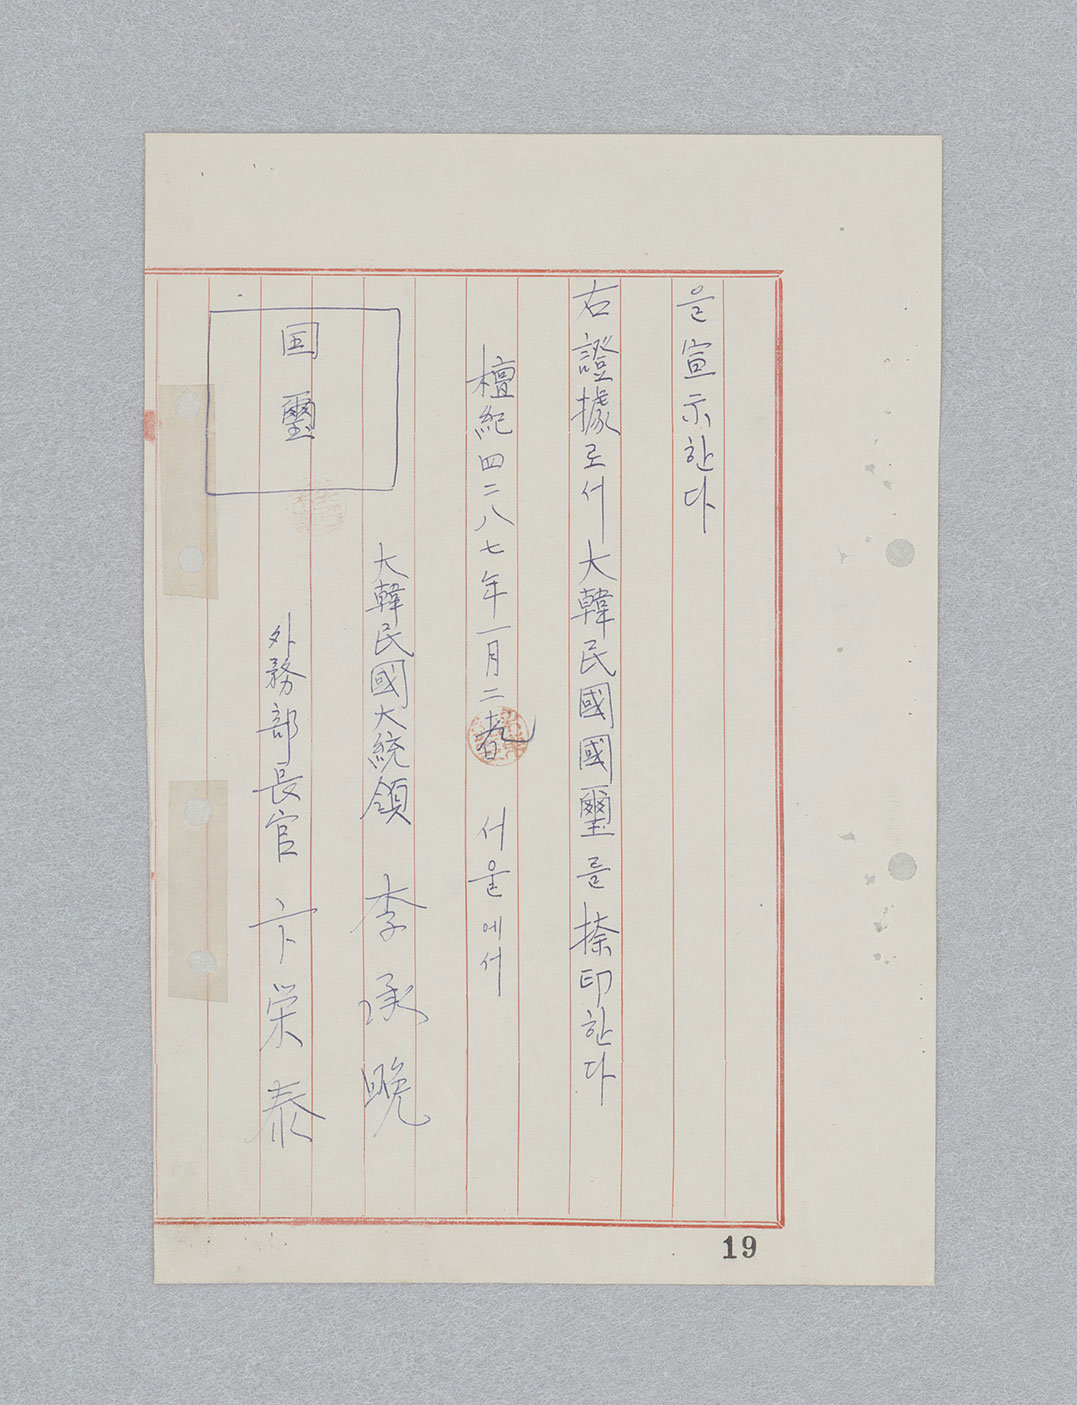 을宣示한다
右證據로서大韓民國國璽를捺印한다
檀紀四二八七年一月二 서울에서
大韓民國大統領 李承晩
国璽
外務部長官 卞栄泰
19